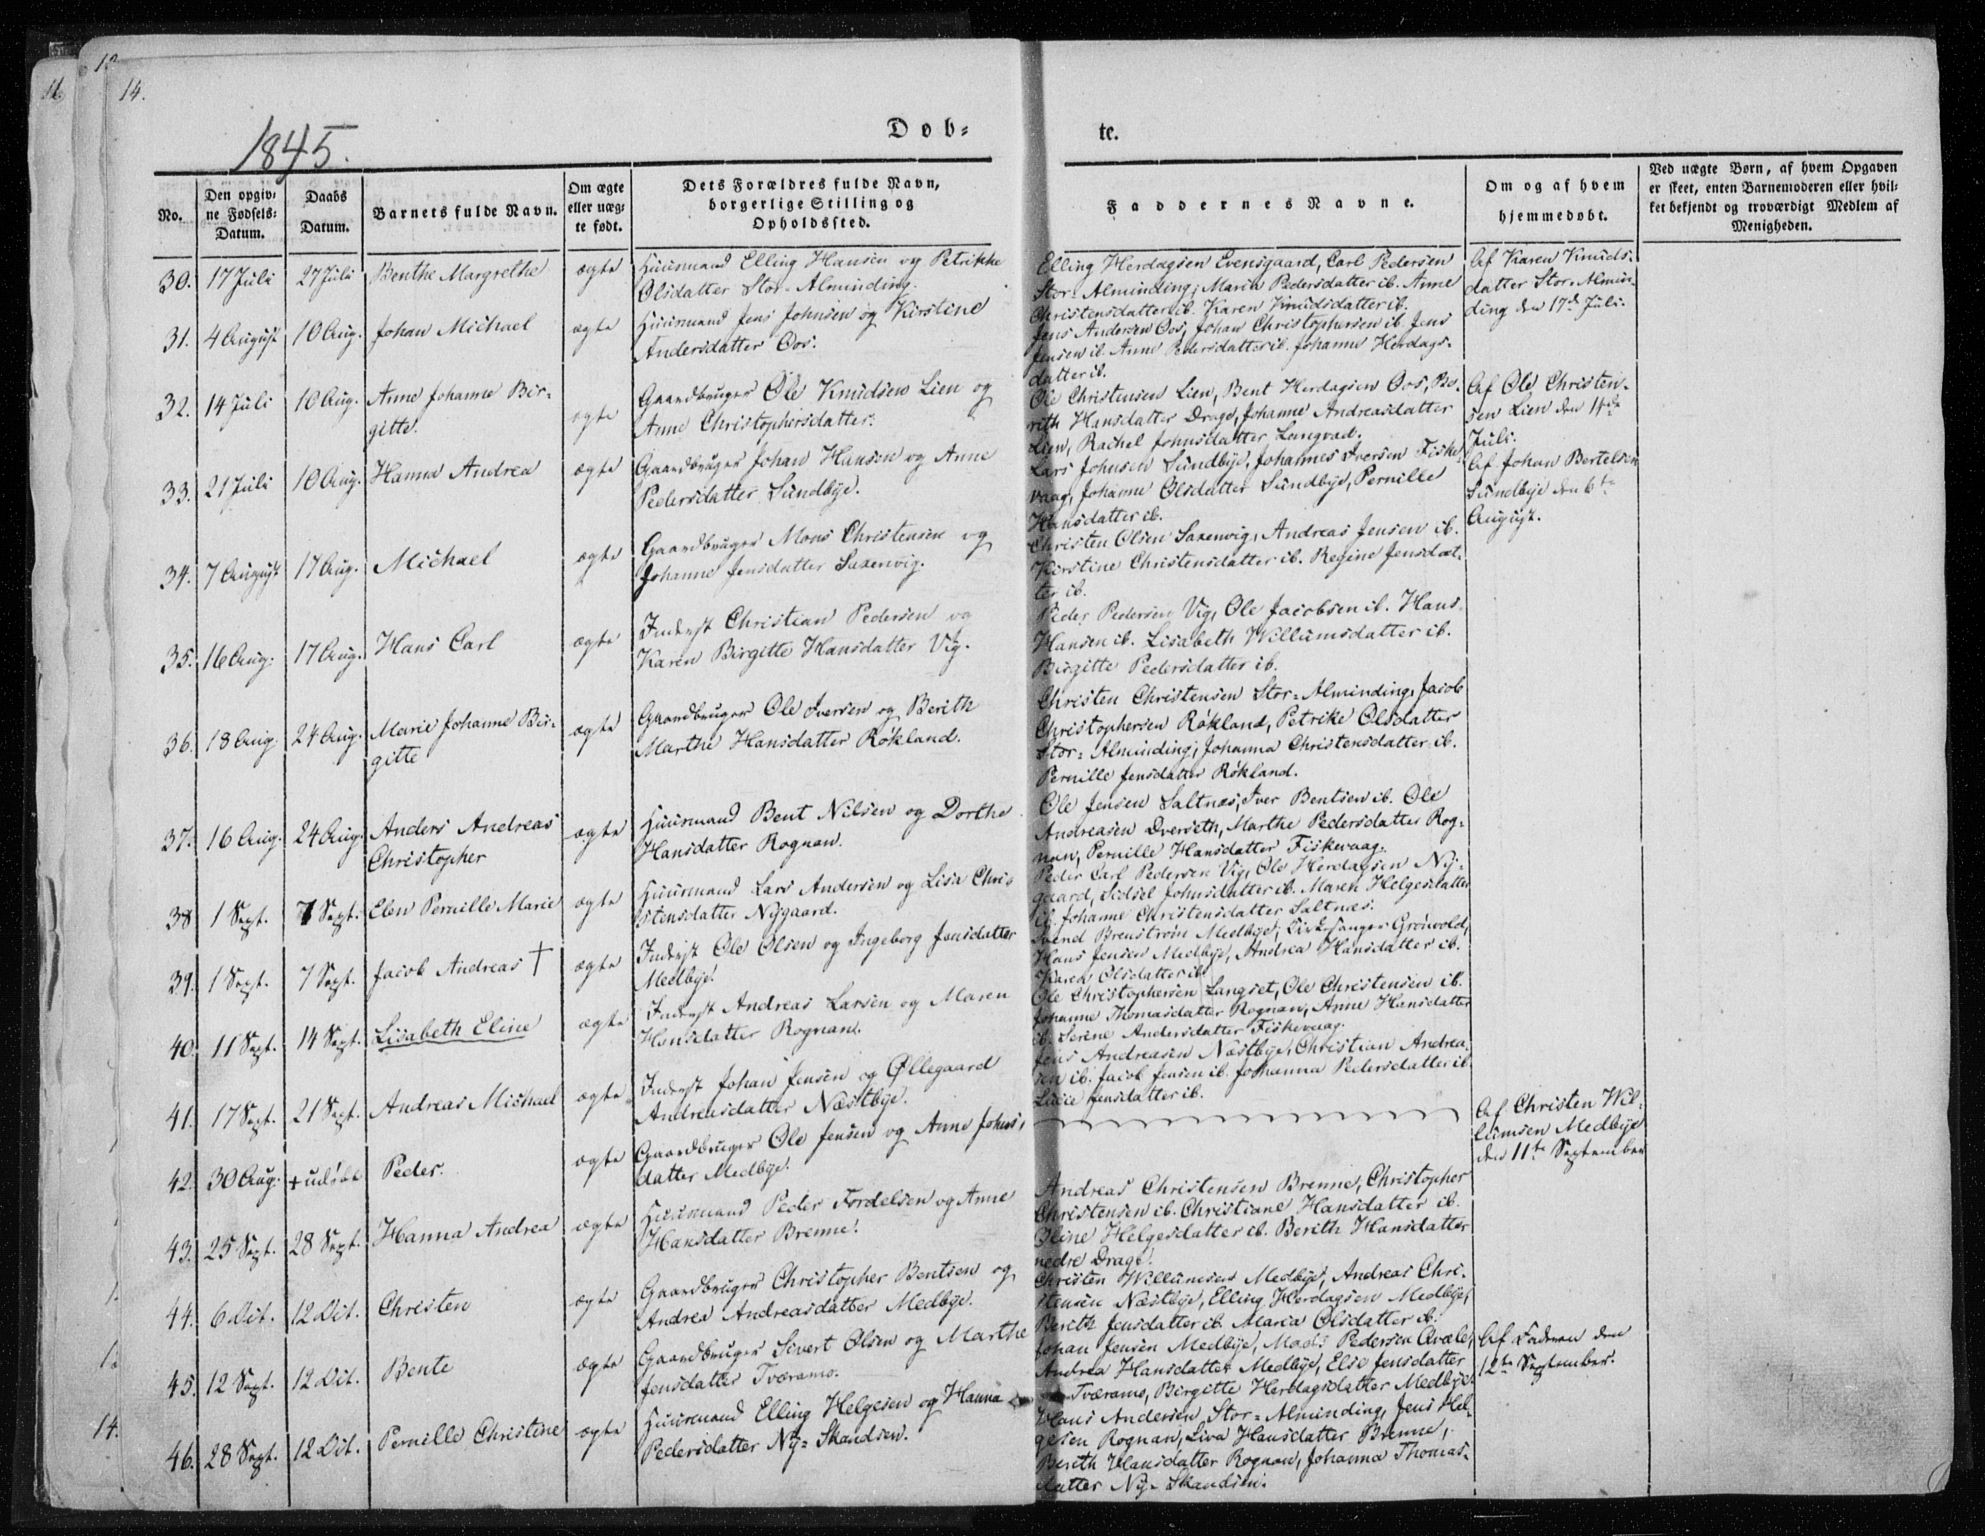 12
11.
14.
1845.
Døb=
te.
No.
Den opgiv=
ne Fødsels=
Datum.
Daabs
Datum.
Barnets fulde Navn.
Om ægte
eller uæg=
te født.
Dets Forældres fulde Navn,
borgerlige Stilling og
Opholdssted.
Faddernes Navne.
Om og af hvem
hjemmedøbt.
Ved uægte Børn, af hvem Opgaven
er skeet, enten Barnemoderen eller hvil=
ket bekjendt og troværdigt Medlem af
Menigheden.
30. 17 Juli 27 Juli Benthe Margrethe ægte
Huusmand Elling Hansen og Petrikke
Olsdatter Stor-Alminding.
Elling Herdagsen Evensgaard, Carl Pedersen
Stor=Alminding, Maria Pedersdatter ib. Anne
Christensdatter ib. Karen Knudsdatter ib.
Af Karen Knuds=
datter Stor-Almin=
ding den 17de Juli.
31. 4 August 10 Aug. Johan Michael ægte
Huusmand Jens Johnsen og Kirstine
Andersdatter Oos.
Jens Andersen Oos, Johan Christophersen ib. Jens
Jensen ib. Anne Pedersdatter ib. Johanne Herdags=
datter ib.
32. 14 Juli 10 Aug. Anne Johanne Bir=
gitte. ægte
Gaardbruger Ole Knudsen Lien og
Anne Christophersdatter.
Ole Christensen Lien, Bent Herdagsen Oos, Be=
rith Hansdatter Drage, Johanne Andreasdatter
Lien, Rachel Johnsdatter Langvad.
Af Ole Christen=
sen Lien den 11te
Juli.
33. 21 Juli 10 Aug. Hanna Andrea ægte
Gaardbruger Johan Hansen og Anne
Pedersdatter Sundbye.
Lars Johnsen Sundbye, Johannes Iversen Fiske
vaag, Johanne Olsdatter Sundbye, Pernille
Hansdatter ib.
Af Johan Bertelsen
Sundbye den 6te
August.
34. 7 August 17 Aug. Michael ægte
Gaardbruger Mons Christensen og
Johanne Jensdatter Saxenvig.
Christen Olsen Saxenvig, Andreas Jensen ib.
Kirstine Christensdatter ib. Regine Jensdat=
ter ib.
35. 16 Aug. 17 Aug. Hans Carl ægte
Inderst Christian Pedersen og
Karen Birgitte Hansdatter Vig.
Peder Pedersen Vig, Ole Jacobsen ib. Hans
Hansen ib. Lisabeth Willumsdatter ib.
Birgitte Pedersdatter ib.
36. 18 Aug. 24 Aug. Marie Johanne Bir=
gitte ægte
Gaardbruger Ole Iversen og Berith
Marthe Hansdatter Røkland.
Christen Christensen Stor=Alminding, Jacob
Christophersen Røkland, Petrike Olsdatter
Stor=Alminding, Johanna Christensdatter ib.
Pernille Jensdatter Røkland.
37. 16 Aug. 24 Aug. Anders Andreas
Christopher ægte
Huusmand Bent Nilsen og Dorthe
Hansdatter Rognan.
Ole Jensen Saltnæs, Iver Bentsen ib. Ole
Andreasen Dverseth, Marthe Pedersdatter Rog=
nan, Pernille Hansdatter Fiskevaag.
38 1 Sept. 7 Sept. Elen Pernille Marie ægte
Huusmand Lars Andersen og Lisa Chri=
stensdatter Nygaard.
Peder Carl Pedersen Vig, Ole Herdagsen Ny=
gaard, Sidsel Johnsdatter ib. Maren Helgesdatter
ib. Johanne Christensdatter Saltnæs.
39. 1 Sept. 7 Sept. Jacob Andreas † ægte
Inderst Ole Olsen og Ingeborg Jensdatter
Medbye.
Svend Brenstrøm Medbye, Kirkesanger Grønvold,
Hans Jensen Medbye, Andrea Hansdatter ib.
Karen Olsdatter ib.
40. 11 Sept. 14 Sept. Lisabeth Eline ægte
Inderst Andreas Larsen og Maren
Hansdatter Rognan.
Ole Christophersen Langset, Ole Christensen ib.
Johanne Thomasdatter Rognan, Anne Hansdatter
ib. Serine Andersdatter Fiskevaag.
41. 17 Sept. 21 Sept. Andreas Michael ægte
Inderst Johan Jensen og Øllegaard
Andreasdatter Næstbye.
Jens Andreasen Næstbye, Christian Andrea=
sen ib. Jacob Jensen ib. Johanna Pedersdatter ib.
Lucie Jensdatter ib.
42. 30 Aug. + udøbt Peder. ægte
Gaardbruger Ole Jensen og Anne Johns=
datter Medbye.
Af Christen Wil=
lumsen Medbye
den 11te September
43. 25 Sept. 28 Sept. Hanna Andrea ægte
Huusmand Peder Tordelsen og Anne
Hansdatter Brenne.
Andreas Christensen Brenne, Christopher
Christensen ib. Christiane Hansdatter ib.
Oline Helgesdatter ib. Berith Hansdatter
nedre Drage.
44. 6 Oct. 12 Oct. Christen ægte
Gaardbruger Christopher Bentsen og
Andrea Andreasdatter Medbye.
Christen Willumsen Medbye, Andreas Chri=
stensen Næstbye, Elling Herdagsen Medbye,
Berith Jensdatter ib. Maria Olsdatter ib.
45. 12 Sept. 12 Oct. Bente ægte
Gaardbruger Sivert Olsen og Marthe
Jensdatter Tværamo.
Johan Jensen Medbye, Mads Pedersen Qvæle,
Andrea Hansdatter Medbye, Else Jensdatter
Tværamo, Birgitte Herdagsdatter Medbye.
Af Faderen den
12te September.
46. 28 Sept. 12 Oct. Pernille Christine ægte
Huusmand Elling Helgesen og Hanna
Pedersdatter Ny=Skandsen.
Hans Andersen Stor=Alminding, Jens Hel=
gesen Rognan, Liva Hansdatter Brenne,
Berith Hansdatter Rognan, Johanna Thomas=
datter Ny-Skandsen.
1.
1.
14.